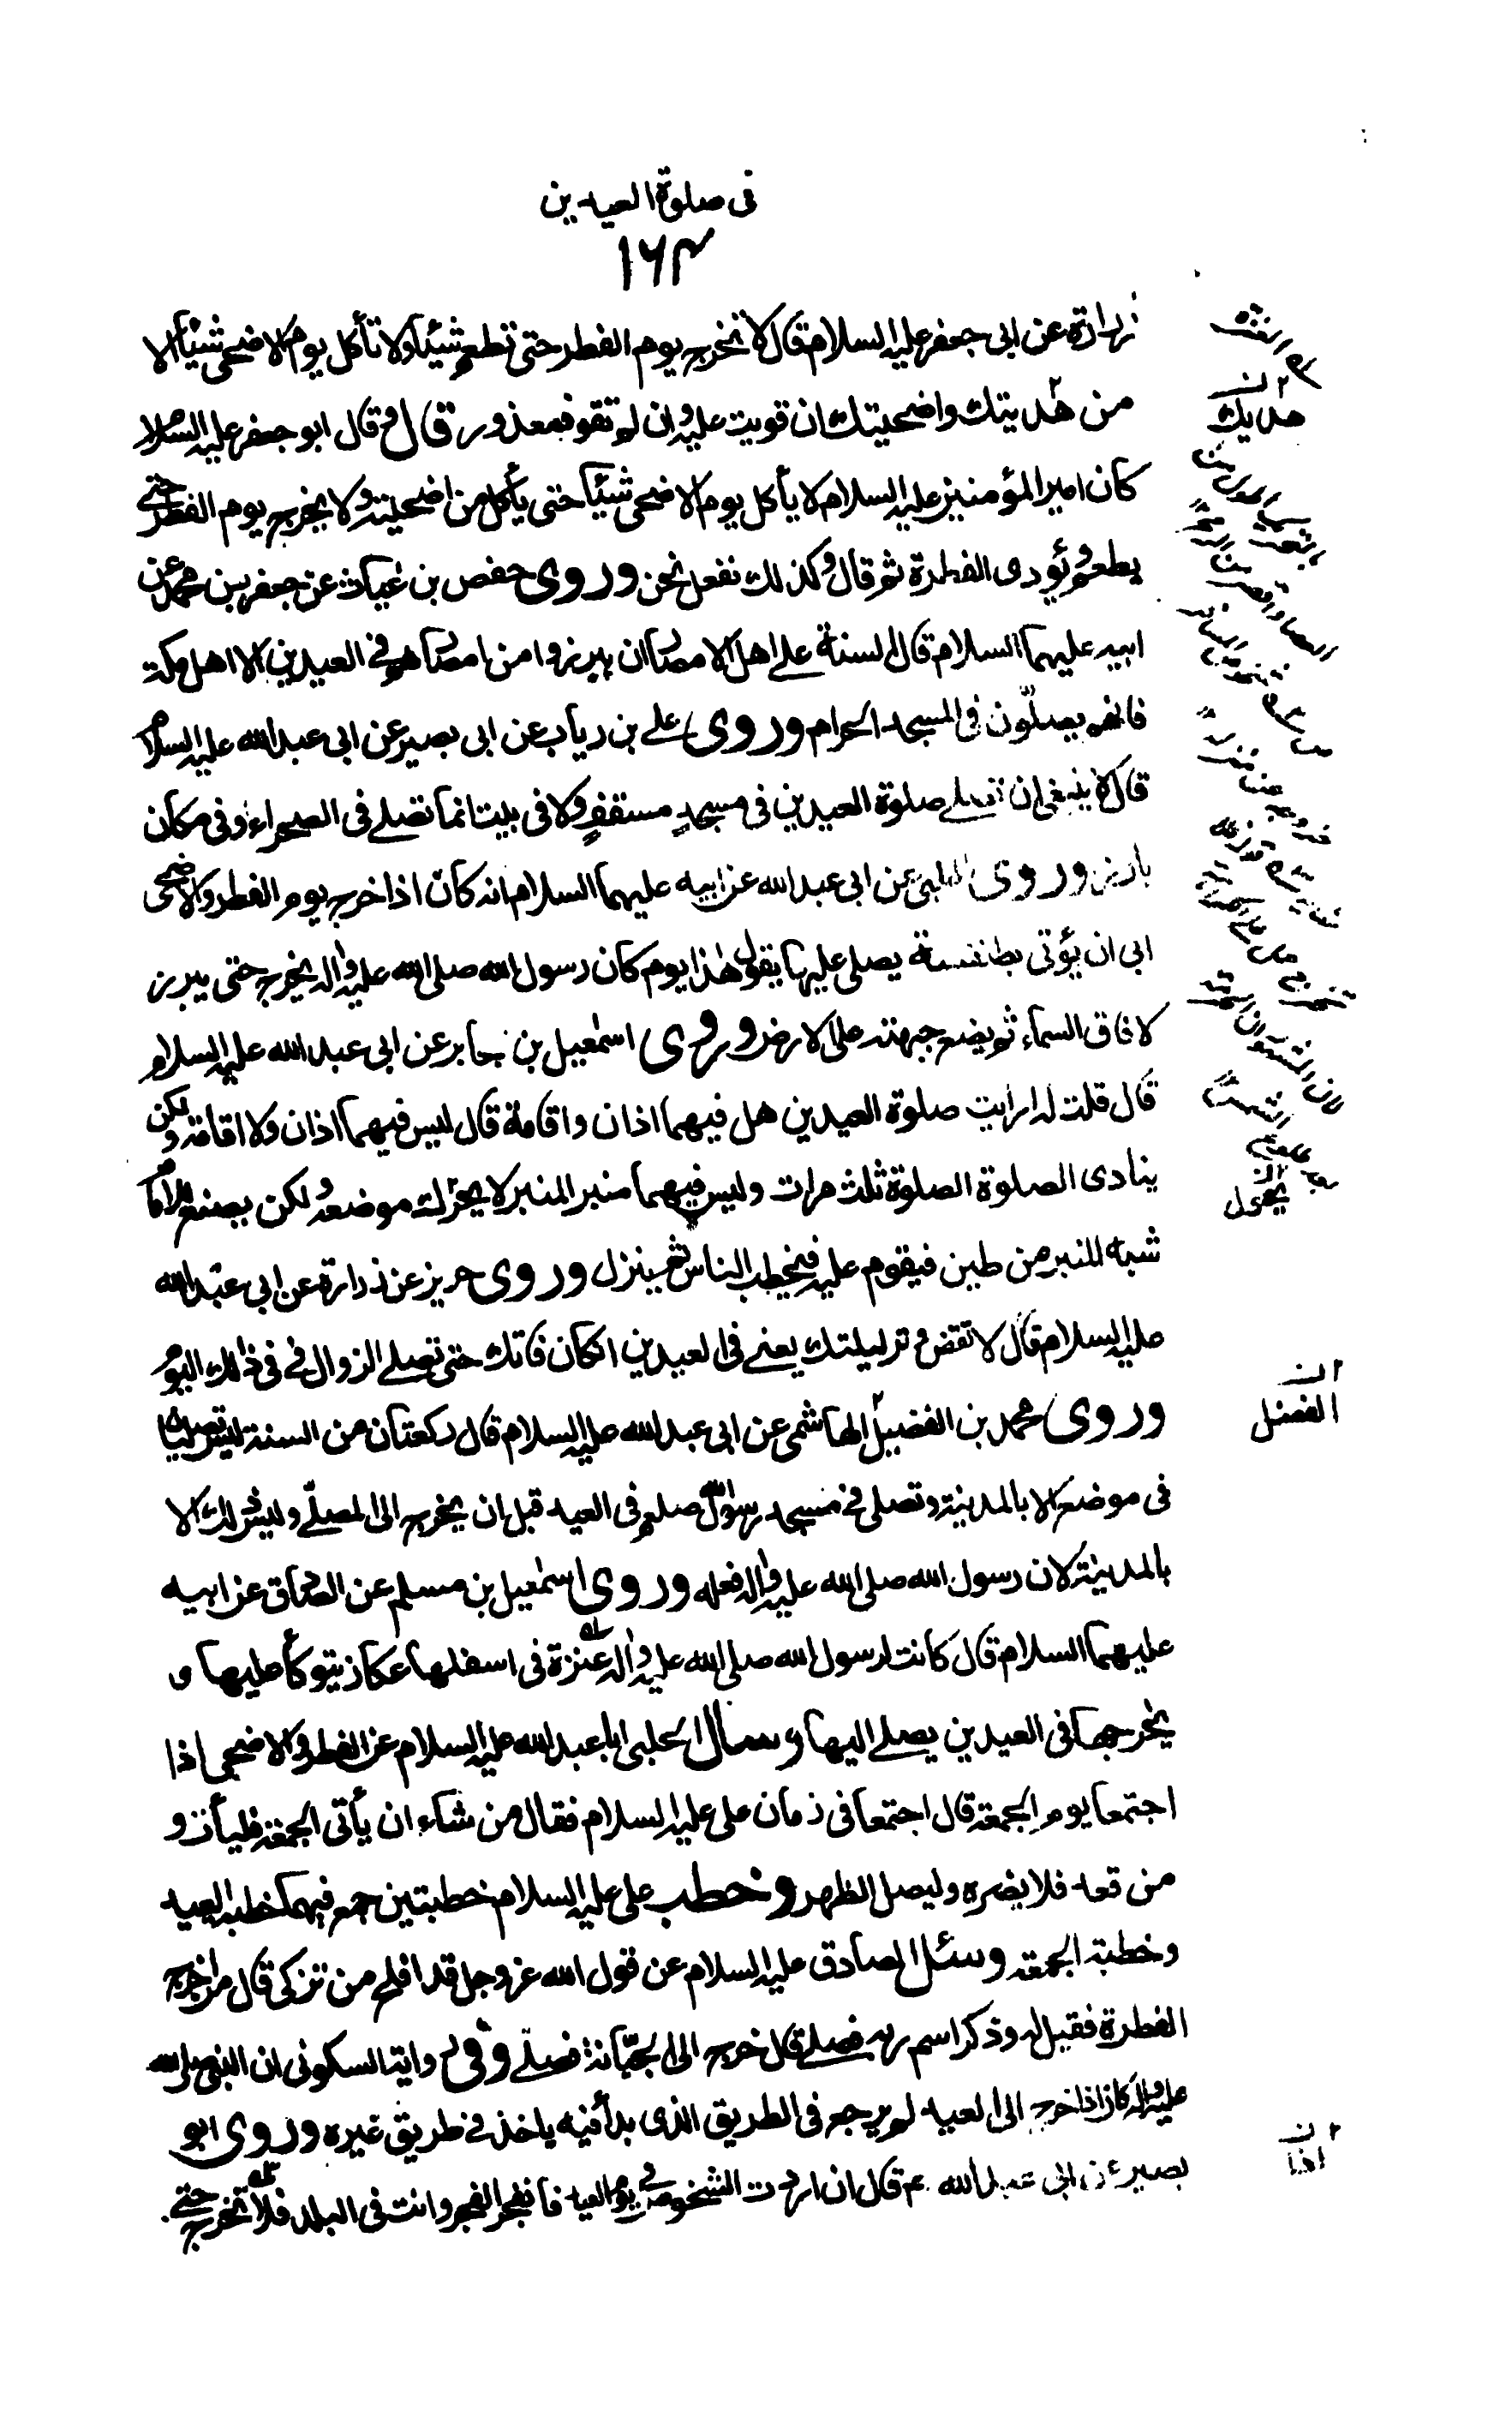 فی صلوة العیدین
۱۶۴
زرارة عن ابی جعفر علیه السلام قال لا تخرج یوم الفطر حتی تطعم شیئا ولا تأکل یوم الاضحی شیئا الا
من هدیتك واضحیتك ان قویت علیه وان لم تقو فمعذور قال وقال ابو جعفر علیه السلام
کان امیر المؤمنین علیه السلام لا یأکل یوم الاضحی شیئا حتی یأکل من اضحیته ولا یخرج یوم الفطر حتی
یطعم ویؤدی الفطرة ثم قال وکذلك نفعل نحن وروی حفص بن غیاث عن جعفر بن محمد عن
ابیه علیهما السلام قال السنة علی اهل الامصار ان یبرزوا من امصارهم فی العیدین الا اهل مکة
فانهم یصلّون فی المسجد الحرام وروی علی بن ریاب عن ابی بصیر عن ابی عبد الله علیه السلام
قال لا ینبغی ان تصلی صلوة العیدین فی مسجد مسقف ولا فی بیت انما تصلی فی الصحراء وفی مکان
بارز وروی الحلبی عن ابی عبد الله عن ابیه علیهما السلام انه کان اذا خرج یوم الفطر والاضحی
ابی ان یؤتی بطنفسة یصلی علیها یقول هذا یوم کان رسول الله صلی الله علیه واله یخرج حتی یبرز
لافاق السماء ثم یضع جبهته علی الارض وروی اسمعیل بن جابر عن ابی عبد الله علیه السلام
قال قلت له ارایت صلوة العیدین هل فیهما اذان واقامة قال لیس فیهما اذان ولا اقامة ولکن
ینادی الصلوة الصلوة ثلث مرات ولیس فیهما منبر المنبر لا یحرّك من موضعه ولکن یصنع للامام
شبه المنبر من طین فیقوم علیه فیخطب الناس ثم ینزل وروی حریز عن زرارة عن ابی عبد الله
علیه السلام قال لا تقض وتر لیلتك یعنی فی العیدین ان کان فاتك حتی تصلی الزوال فی ذلك الیوم
وروی محمد بن الفضیل الهاشمی عن ابی عبد الله علیه السلام قال رکعتان من السنة لیس تصلیان
فی موضع الا بالمدینة وتصلی فی مسجد رسول الله صلعم فی العید قبل ان یخرج الی المصلّی ولیس ذلك الا
بالمدینة لان رسول الله صلی الله علیه واله فعله وروی اسمعیل بن مسلم عن الصادق عن ابیه
علیهما السلام قال کانت لرسول الله صلی الله علیه واله عنزة فی اسفلها عکاز یتوکأ علیها و
یخرجها فی العیدین یصلی الیها وسأل الحلبی ابا عبد الله علیه السلام عن الفطر والاضحی اذا
اجتمعا یوم الجمعة قال اجتمعا فی زمان علی علیه السلام فقال من شاء ان یأتی الجمعة فلیأت و
من قعد فلا یضره ولیصل الظهر وخطب علی علیه السلام خطبتین جمع فیهما خطبة العید
وخطبة الجمعة وسئل الصادق علیه السلام عن قول الله عز وجل قد افلح من تزکی قال من اخرج
الفطرة فقیل له وذکر اسم ربه فصلی قال خرج الی الجبّانة فصلّی وفی روایة السکونی ان النبی صلی الله
علیه واله کان اذا خرج الی العید لم یرجع فی الطریق الذی بدأ فیه یاخذ فی طریق غیره وروی ابو
بصیر عن ابی عبد الله ع قال ان اردت الشخوص فی یوم العید فانفجر الفجر وانت فی البلد فلا تخرج حتی
هدیك
یحول
الفضل
اذا